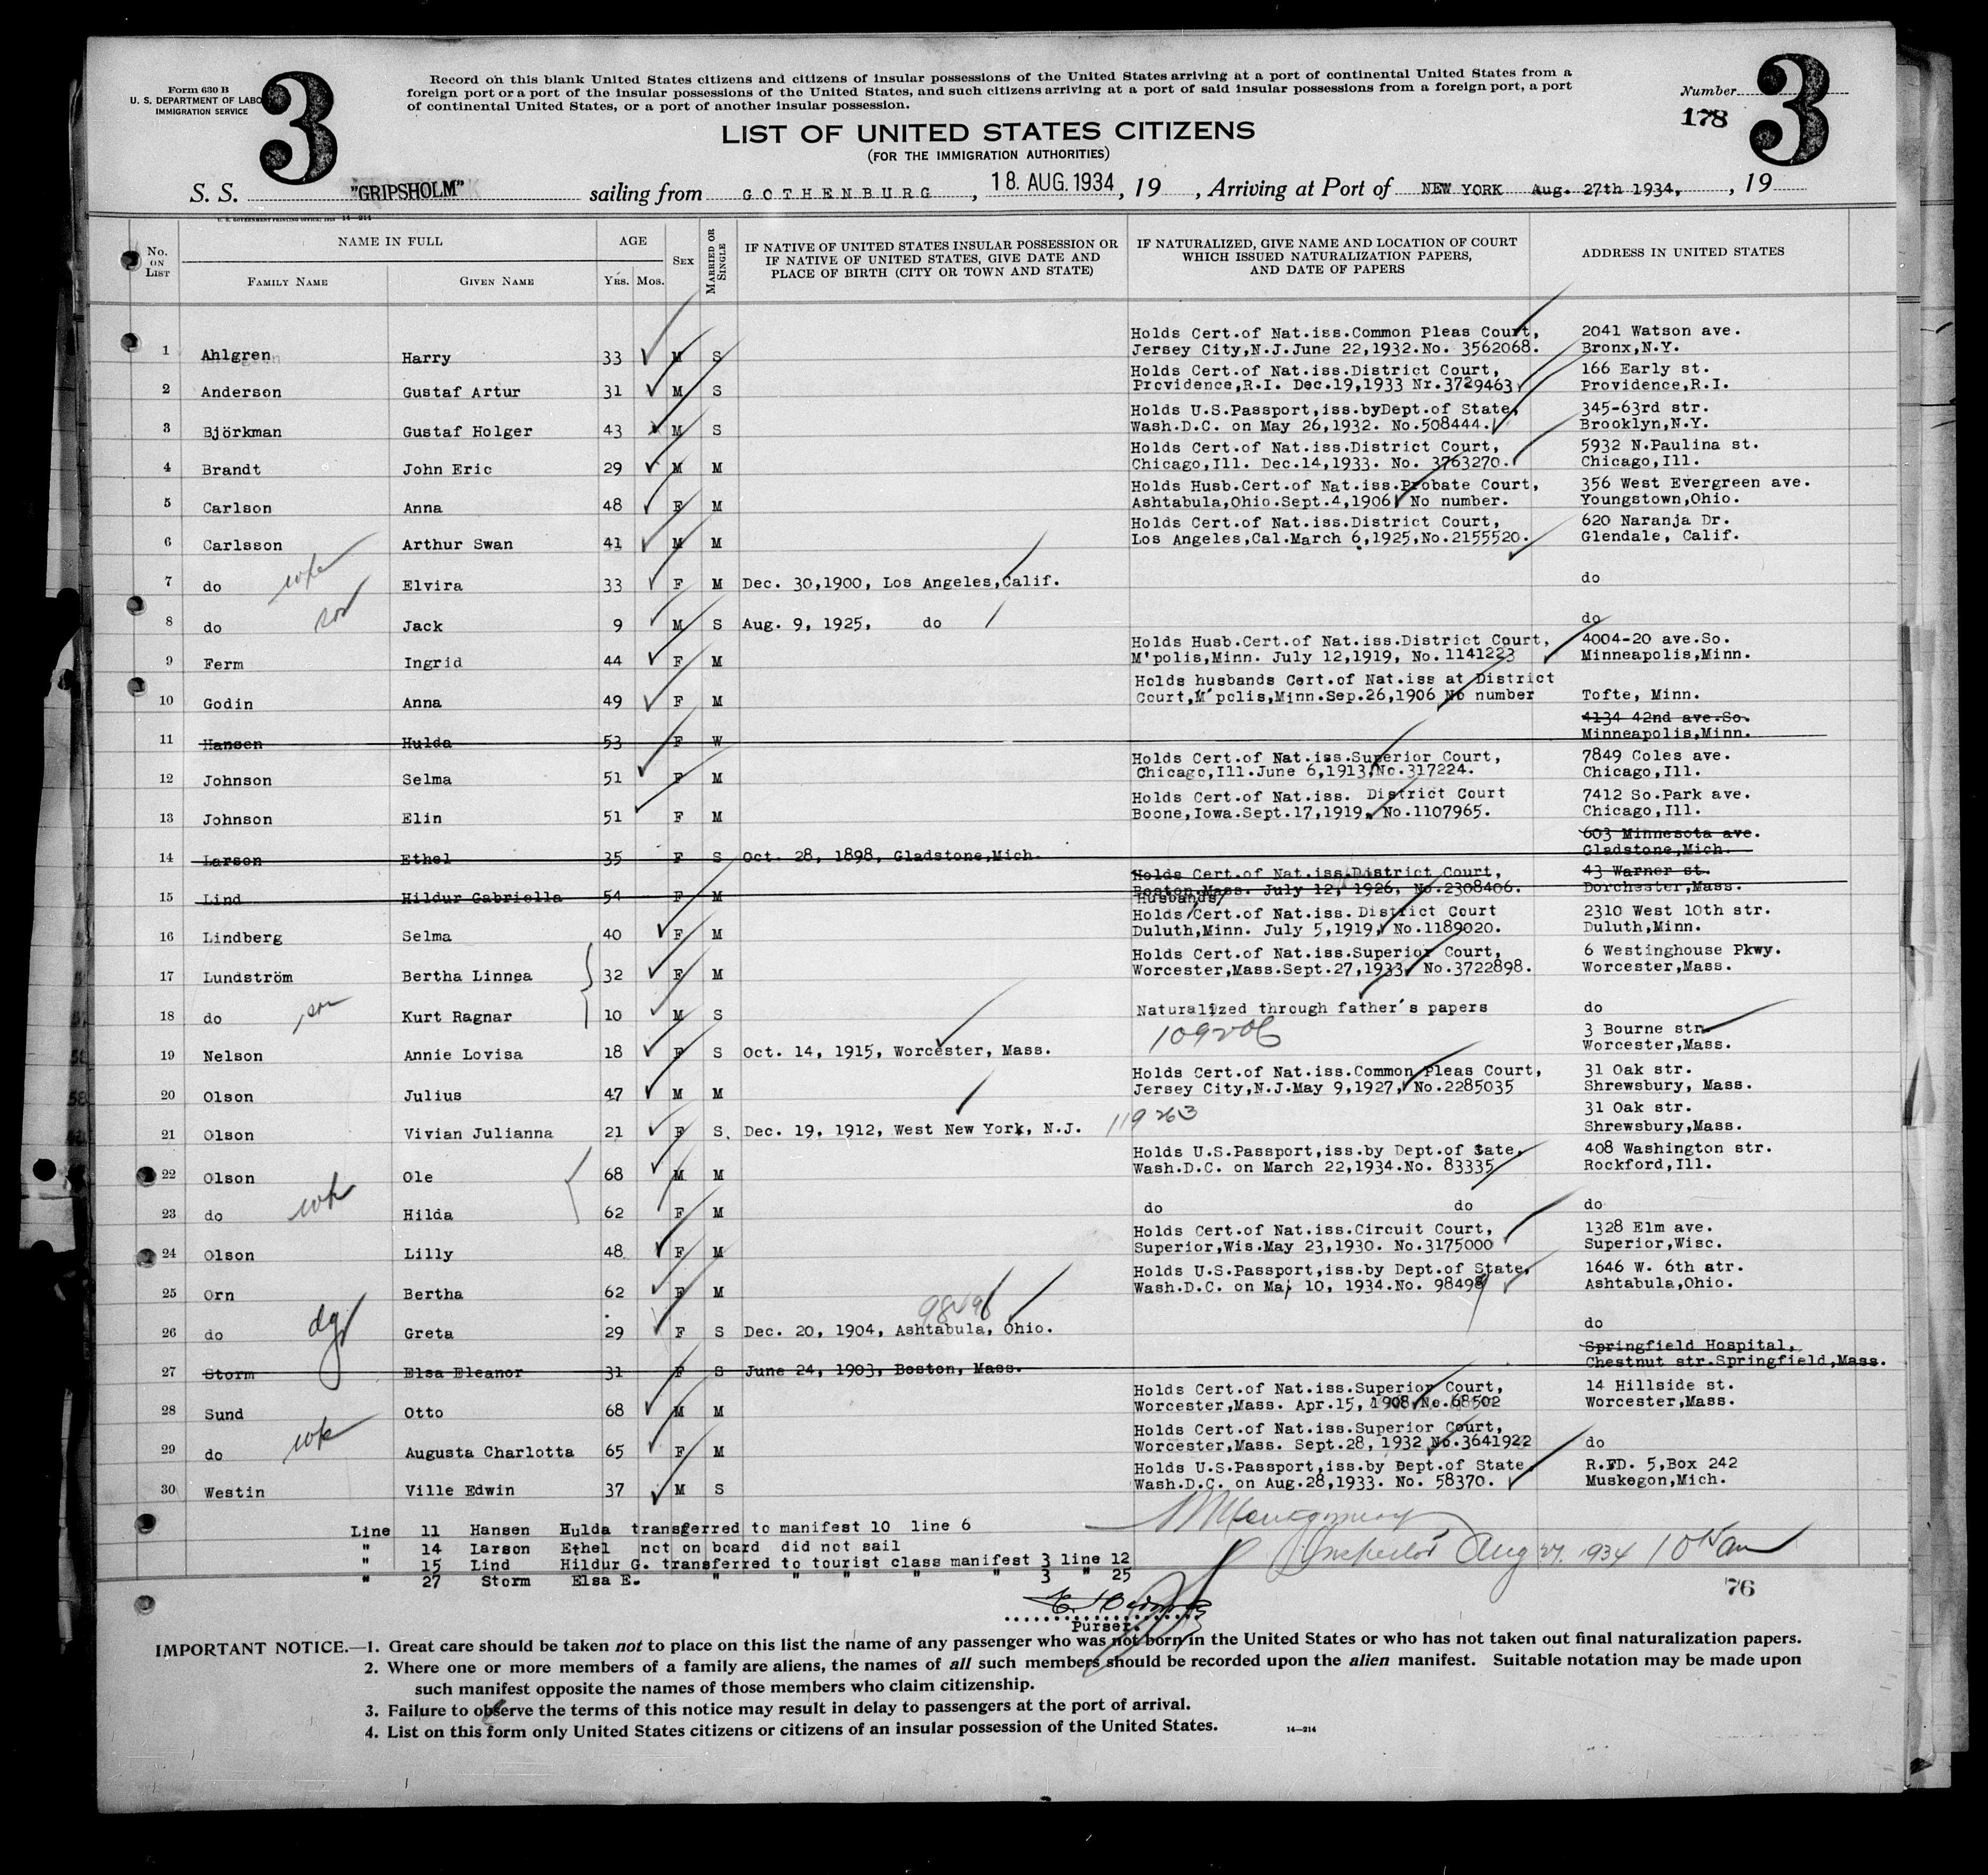 Form 630 B
U. S. DEPARTMENT OF LABO
IMMIGRATION SERVICE
3
Record on this blank United States citizens and citizens of insular possessions of the United States arriving at a port of continental United States from a
foreign port or a port of the insular possessions of the United States, and such citizens arriving at a port of said insular possessions from a foreign port, a port
of continental United States, or a port of another insular possession.
Number
178
3
LIST OF UNITED STATES CITIZENS
(FOR THE IMMIGRATION AUTHORITIES)
S. S. "GRIPSHOLM" sailing from GOTHENBURG, 18. AUG. 1934, 19 , Arriving at Port of NEW YORK Aug. 27th 1934, , 19
U. S. GOVERNMENT PRINTING OFFICE: 14—214
No. ON LIST
NAME IN FULL
FAMILY NAME
GIVEN NAME
AGE
YRS. MOS.
SEX
MARRIED OR SINGLE
IF NATIVE OF UNITED STATES INSULAR POSSESSION OR
IF NATIVE OF UNITED STATES, GIVE DATE AND
PLACE OF BIRTH (CITY OR TOWN AND STATE)
IF NATURALIZED, GIVE NAME AND LOCATION OF COURT
WHICH ISSUED NATURALIZATION PAPERS,
AND DATE OF PAPERS
ADDRESS IN UNITED STATES
Holds Cert.of Nat.iss.Common Pleas Court, 2041 Watson ave.
1 Ahlgren Harry 33 M S Jersey City,N.J.June 22,1932.No. 3562068. Bronx,N.Y.
Holds Cert.of Nat.iss.District Court, 166 Early st.
2 Anderson Gustaf Artur 31 M S Providence,R.I. Dec.19,1933 Nr.3729463 Providence,R.I.
Holds U.S.Passport,iss.byDept.of State, 345-63rd str.
3 Björkman Gustaf Holger 43 M S Wash.D.C. on May 26,1932. No.508444. Brooklyn,N.Y.
Holds Cert.of Nat.iss.District Court, 5932 N.Paulina st.
4 Brandt John Eric 29 M M Chicago,Ill. Dec.14,1933. No. 3763270. Chicago,Ill.
Holds Husb.Cert.of Nat.iss.Probate Court, 356 West Evergreen ave.
5 Carlson Anna 48 F M Ashtabula,Ohio.Sept.4,1906 No number. Youngstown,Ohio.
Holds Cert.of Nat.iss.District Court, 620 Naranja Dr.
6 Carlsson Arthur Swan 41 M M Los Angeles,Cal.March 6,1925,No.2155520. Glendale, Calif.
7 do wife Elvira 33 F M Dec. 30,1900, Los Angeles,Calif. do
8 do son Jack 9 M S Aug. 9, 1925, do do
Holds Husb.Cert.of Nat.iss.District Court, 4004-20 ave.So.
9 Ferm Ingrid 44 F M M'polis,Minn. July 12,1919, No.1141223 Minneapolis,Minn.
Holds husbands Cert.of Nat.iss at District
10 Godin Anna 49 F M Court,M'polis,Minn.Sep.26,1906 No number Tofte, Minn.
4134 42nd ave.So.
11 Hansen Hulda 53 F W Minneapolis,Minn.
Holds Cert.of Nat.iss.Superior Court, 7849 Coles ave.
12 Johnson Selma 51 F M Chicago,Ill.June 6,1913,No.317224. Chicago,Ill.
Holds Cert.of Nat.iss. District Court 7412 So.Park ave.
13 Johnson Elin 51 F M Boone,Iowa.Sept.17,1919, No.1107965. Chicago,Ill.
603 Minnesota ave.
14 Larson Ethel 35 F S Oct. 28, 1898, Gladstone,Mich. Gladstone,Mich.
Holds Cert.of Nat.iss.District Court, 43 Warner st.
15 Lind Hildur Gabriella 54 F M Boston,Mass. July 12, 1926, No.2308406. Dorchester,Mass.
Husbands/
Holds/Cert.of Nat.iss. District Court 2310 West 10th str.
16 Lindberg Selma 40 F M Duluth,Minn. July 5,1919, No.1189020. Duluth,Minn.
Holds Cert.of Nat.iss.Superior Court, 6 Westinghouse Pkwy.
17 Lundström Bertha Linnea 32 F M Worcester,Mass.Sept.27,1933, No.3722898. Worcester,Mass.
18 do son Kurt Ragnar 10 M S Naturalized through father's papers do
109206 3 Bourne str.
19 Nelson Annie Lovisa 18 F S Oct. 14, 1915, Worcester, Mass. Worcester,Mass.
Holds Cert.of Nat.iss.Common Pleas Court, 31 Oak str.
20 Olson Julius 47 M M Jersey City,N.J.May 9,1927, No.2285035 Shrewsbury, Mass.
119263 31 Oak str.
21 Olson Vivian Julianna 21 F S. Dec. 19, 1912, West New York, N.J. Shrewsbury,Mass.
Holds U.S.Passport,iss.by Dept.of State, 408 Washington str.
22 Olson Ole 68 M M Wash.D.C. on March 22,1934.No. 83335 Rockford,Ill.
23 do wife Hilda 62 F M do do do
Holds Cert.of Nat.iss.Circuit Court, 1328 Elm ave.
24 Olson Lilly 48 F M Superior,Wis.May 23,1930. No.3175000 Superior,Wisc.
Holds U.S.Passport,iss.by Dept.of State, 1646 W. 6th str.
25 Orn Bertha 62 F M Wash.D.C. on Maj 10, 1934.No. 98498 Ashtabula,Ohio.
98498
26 do dg Greta 29 F S Dec. 20, 1904, Ashtabula, Ohio. do
Springfield Hospital,
27 Storm Elsa Eleanor 31 F S June 24, 1903, Boston, Mass. Chestnut str.Springfield,Mass.
Holds Cert.of Nat.iss.Superior Court, 14 Hillside st.
28 Sund Otto 68 M M Worcester,Mass. Apr.15, 1908,No.68502 Worcester,Mass.
Holds Cert.of Nat.iss.Superior Court,
29 do wife Augusta Charlotta 65 F M Worcester,Mass. Sept.28, 1932 No.3641922 do
Holds U.S.Passport,iss.by Dept.of State, R.FD. 5,Box 242
30 Westin Ville Edwin 37 M S Wash.D.C. on Aug.28,1933. No. 58370. Muskegon,Mich.
Line 11 Hansen Hulda transferred to manifest 10 line 6
" 14 Larson Ethel not on board did not sail
" 15 Lind Hildur G. transferred to tourist class manifest 3 line 12
" 27 Storm Elsa E. " " " " " 3 " 25
Montgomery
Inspector Aug 27. 1934 10 15 am
76
Purser.
IMPORTANT NOTICE.—1. Great care should be taken not to place on this list the name of any passenger who was not born in the United States or who has not taken out final naturalization papers.
2. Where one or more members of a family are aliens, the names of all such members should be recorded upon the alien manifest. Suitable notation may be made upon
such manifest opposite the names of those members who claim citizenship.
3. Failure to observe the terms of this notice may result in delay to passengers at the port of arrival.
4. List on this form only United States citizens or citizens of an insular possession of the United States.
14—214